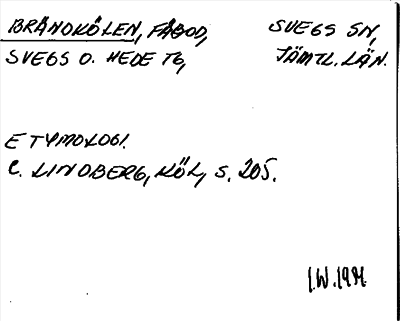 BRÄNDKÖLEN, FÄBOD, SVEGS SN,
SVEGS O. HEDE TG, JÄMTL. LÄN.
ETYMOLOGI.
C. LINDBERG, KÖL, S. 205.
I.W. 1974